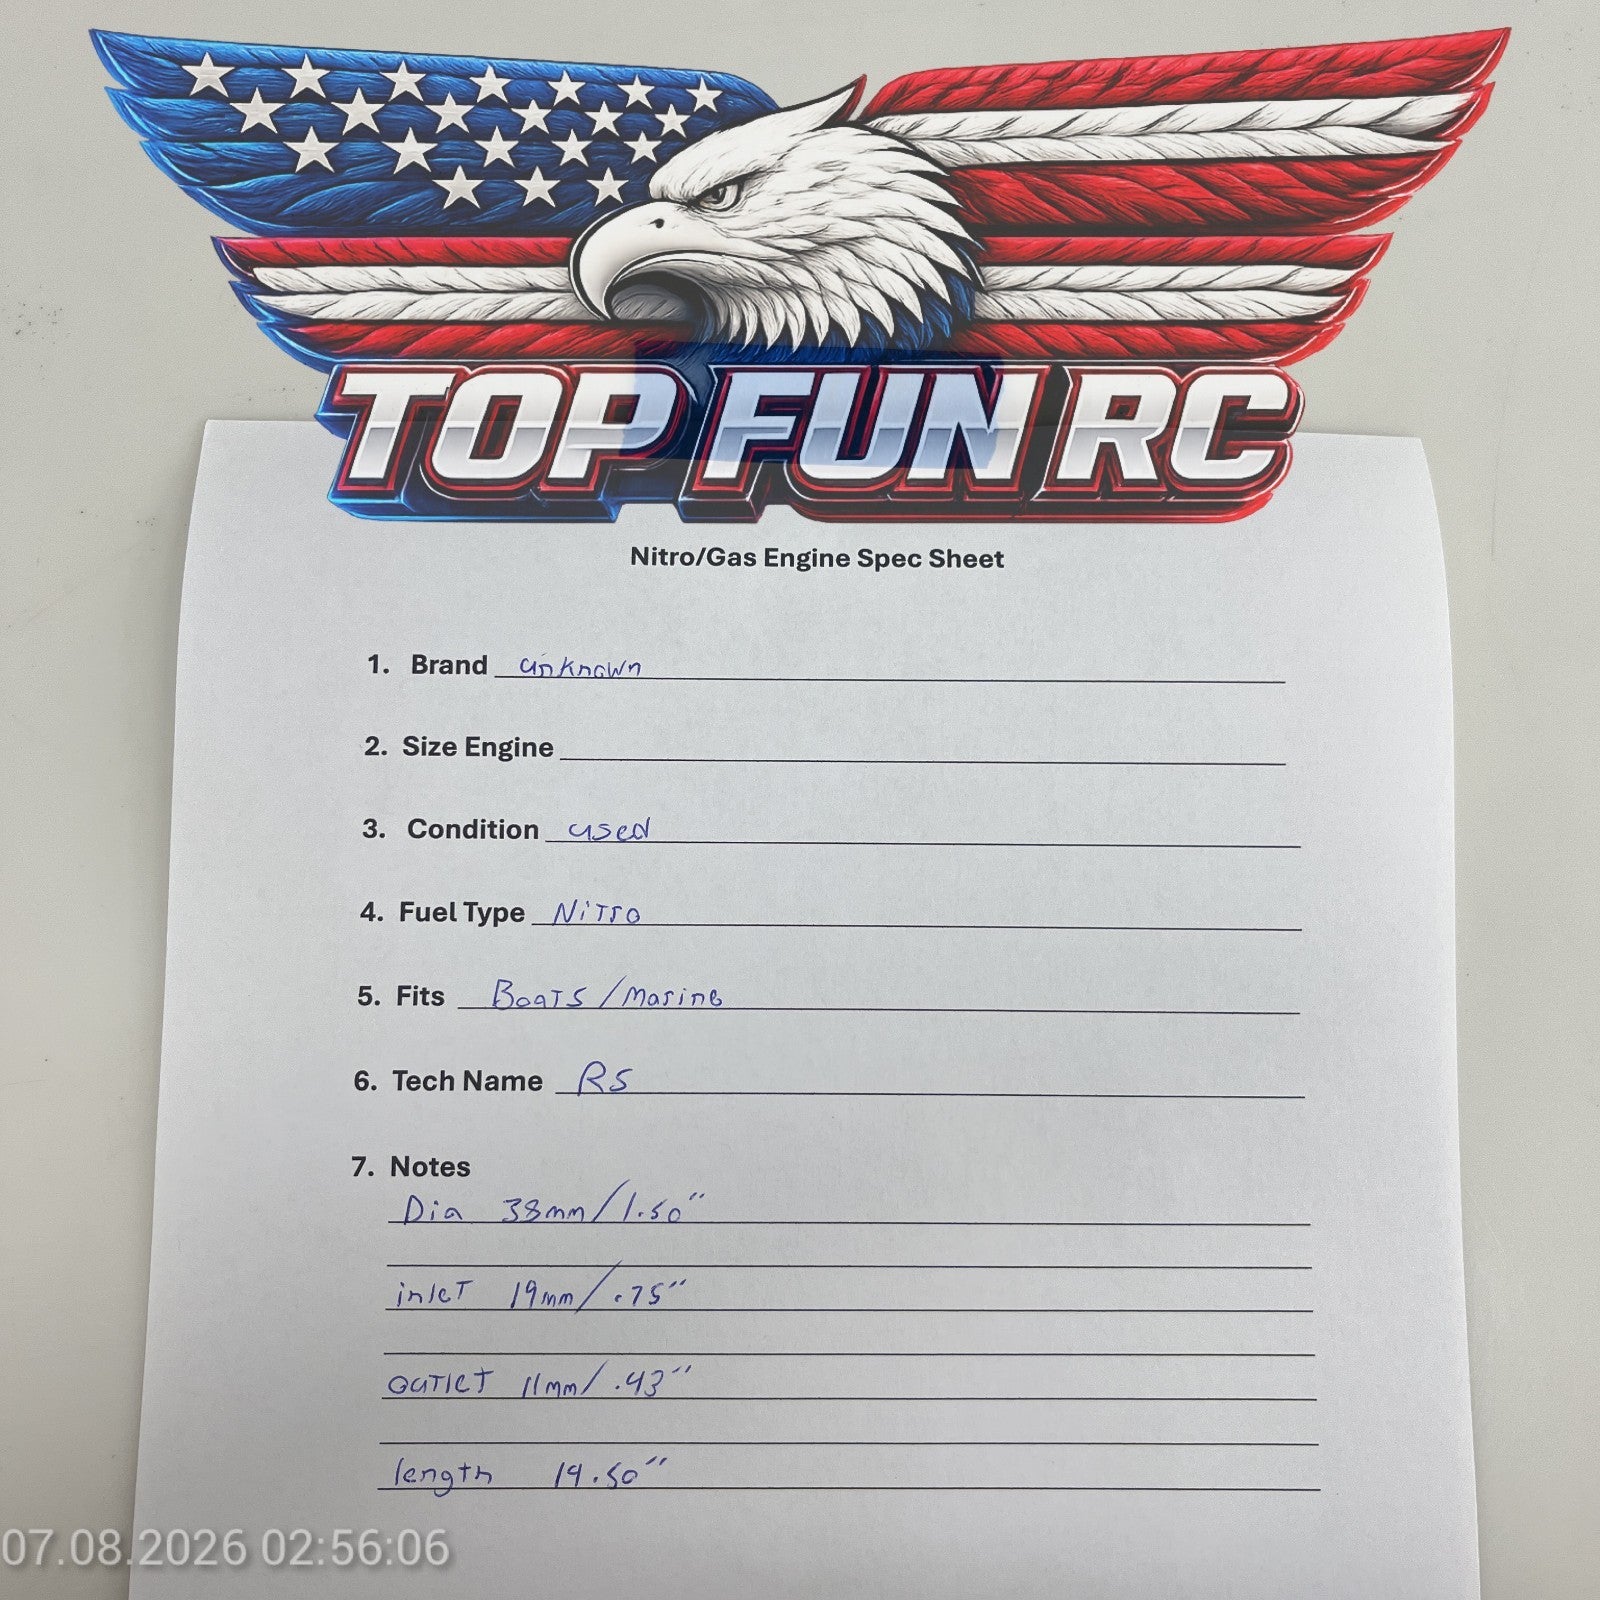 TOP FUN RC
Nitro/Gas Engine Spec Sheet
1. Brand unknown
2. Size Engine
3. Condition used
4. Fuel Type Nitro
5. Fits Boats/marine
6. Tech Name RS
7. Notes
Dia 38mm/1.50"
inlet 19mm/.75"
outlet 11mm/.43"
length 19.50"
07.08.2026 02:56:06